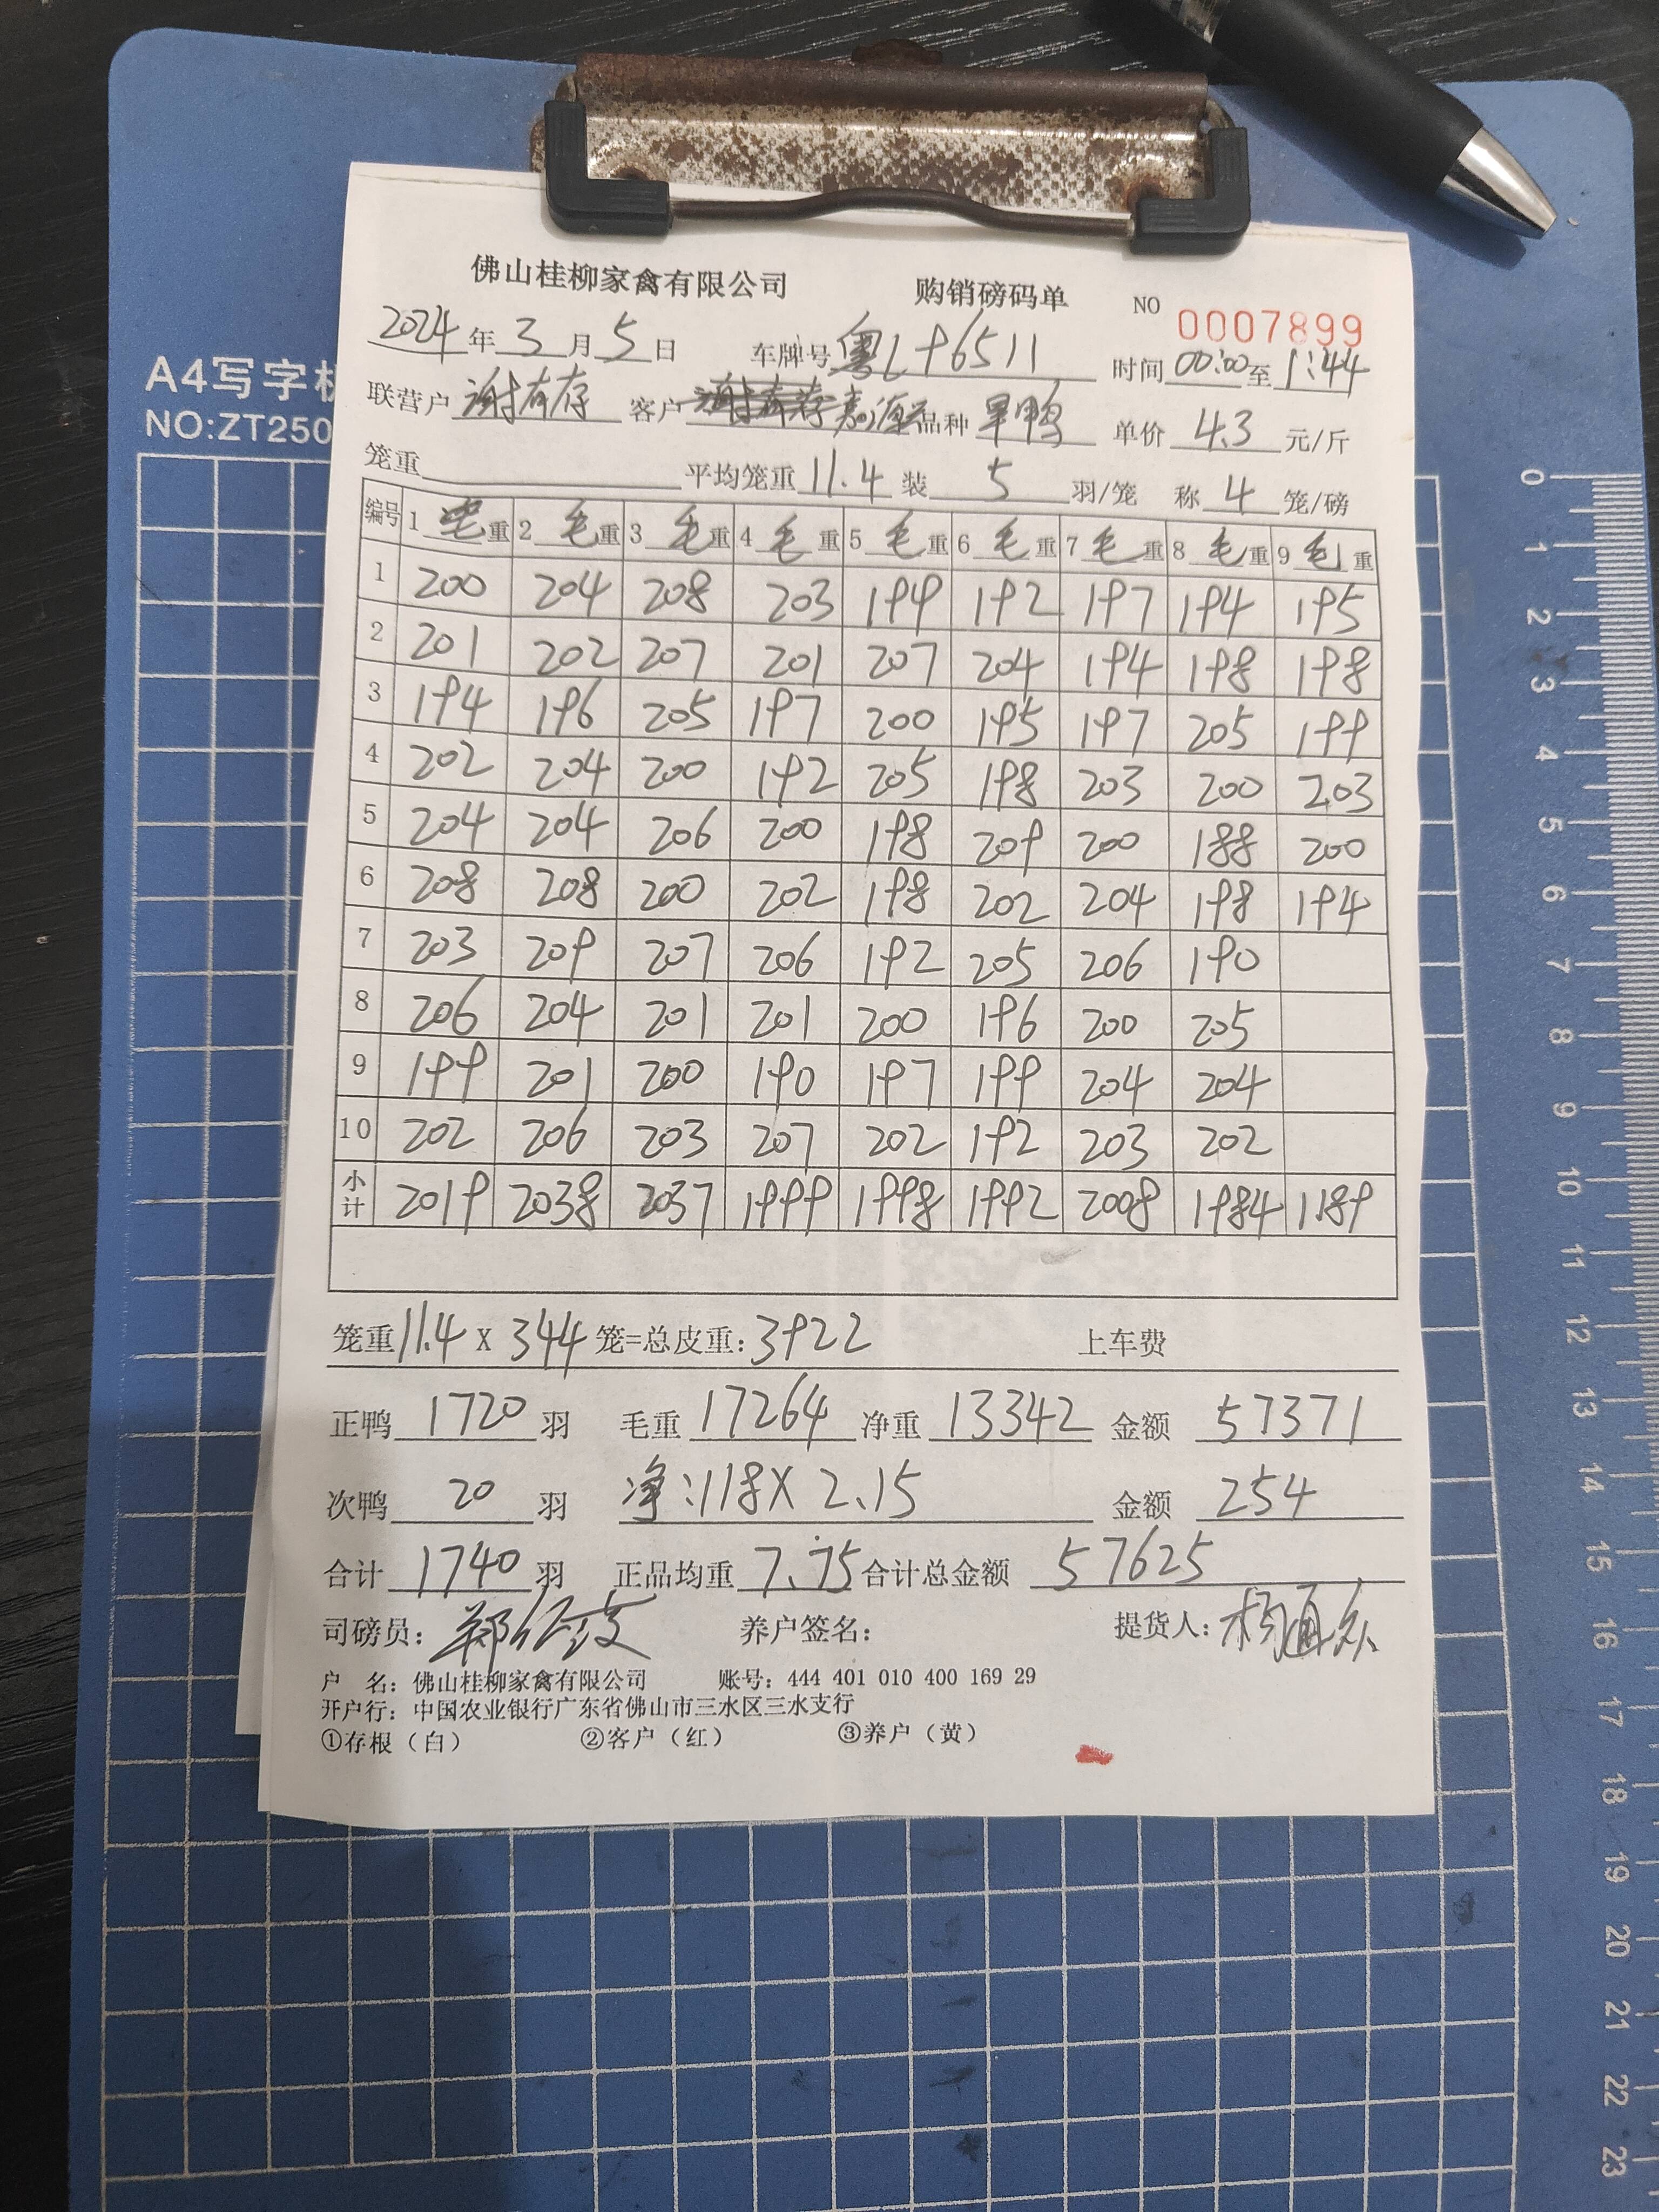 佛山桂柳家禽有限公司 购销磅码单 NO 0007899
2024年3月5日 车牌号 粤L96511 时间 00:00至1:44
联营户 谢有存 客户 品种 旱鸭 单价 4.3 元/斤
笼重 平均笼重 11.4 装 5 羽/笼 称 4 笼/磅
编号 1 毛重 2 毛重 3 毛重 4 毛重 5 毛重 6 毛重 7 毛重 8 毛重 9 毛重
1 200 204 208 203 199 192 197 194 195
2 201 202 207 201 207 204 194 198 198
3 194 196 205 197 200 195 197 205 199
4 202 204 200 192 205 198 203 200 203
5 204 204 206 200 198 209 200 188 200
6 208 208 200 202 198 202 204 198 194
7 203 209 207 206 192 205 206 190
8 206 204 201 201 200 196 200 205
9 199 201 200 190 197 199 204 204
10 202 206 203 207 202 192 203 202
小计 2019 2038 2037 1999 1998 1992 2008 1984 1189
笼重 11.4 X 344 笼=总皮重: 3922 上车费
正鸭 1720 羽 毛重 17264 净重 13342 金额 57371
次鸭 20 羽 净:118X 2.15 金额 254
合计 1740 羽 正品均重 7.75 合计总金额 57625
司磅员: 养户签名: 提货人:
户 名: 佛山桂柳家禽有限公司 账号: 444 401 010 400 169 29
开户行: 中国农业银行广东省佛山市三水区三水支行
①存根（白） ②客户（红） ③养户（黄）
A4写字板
NO:ZT250
0
1
2
3
4
5
6
7
8
9
10
11
12
13
14
15
16
17
18
19
20
21
22
23